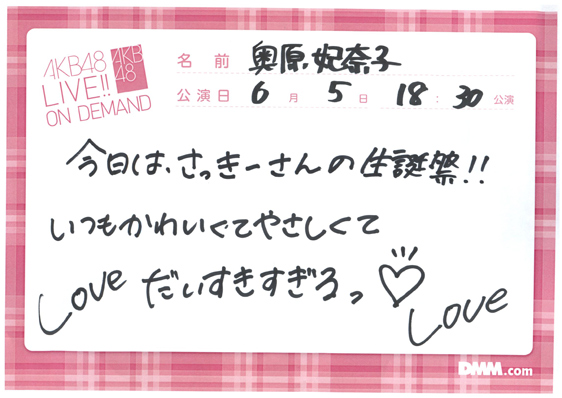 AKB48
LIVE!!
ON DEMAND
AKB
48
名前 奥原妃奈子
公演日 6月5日 18:30公演
今日は、さっきーさんの生誕祭!!
いつもかわいくてやさしくて
Love だいすきすぎるっ♡
Love
DMM.com